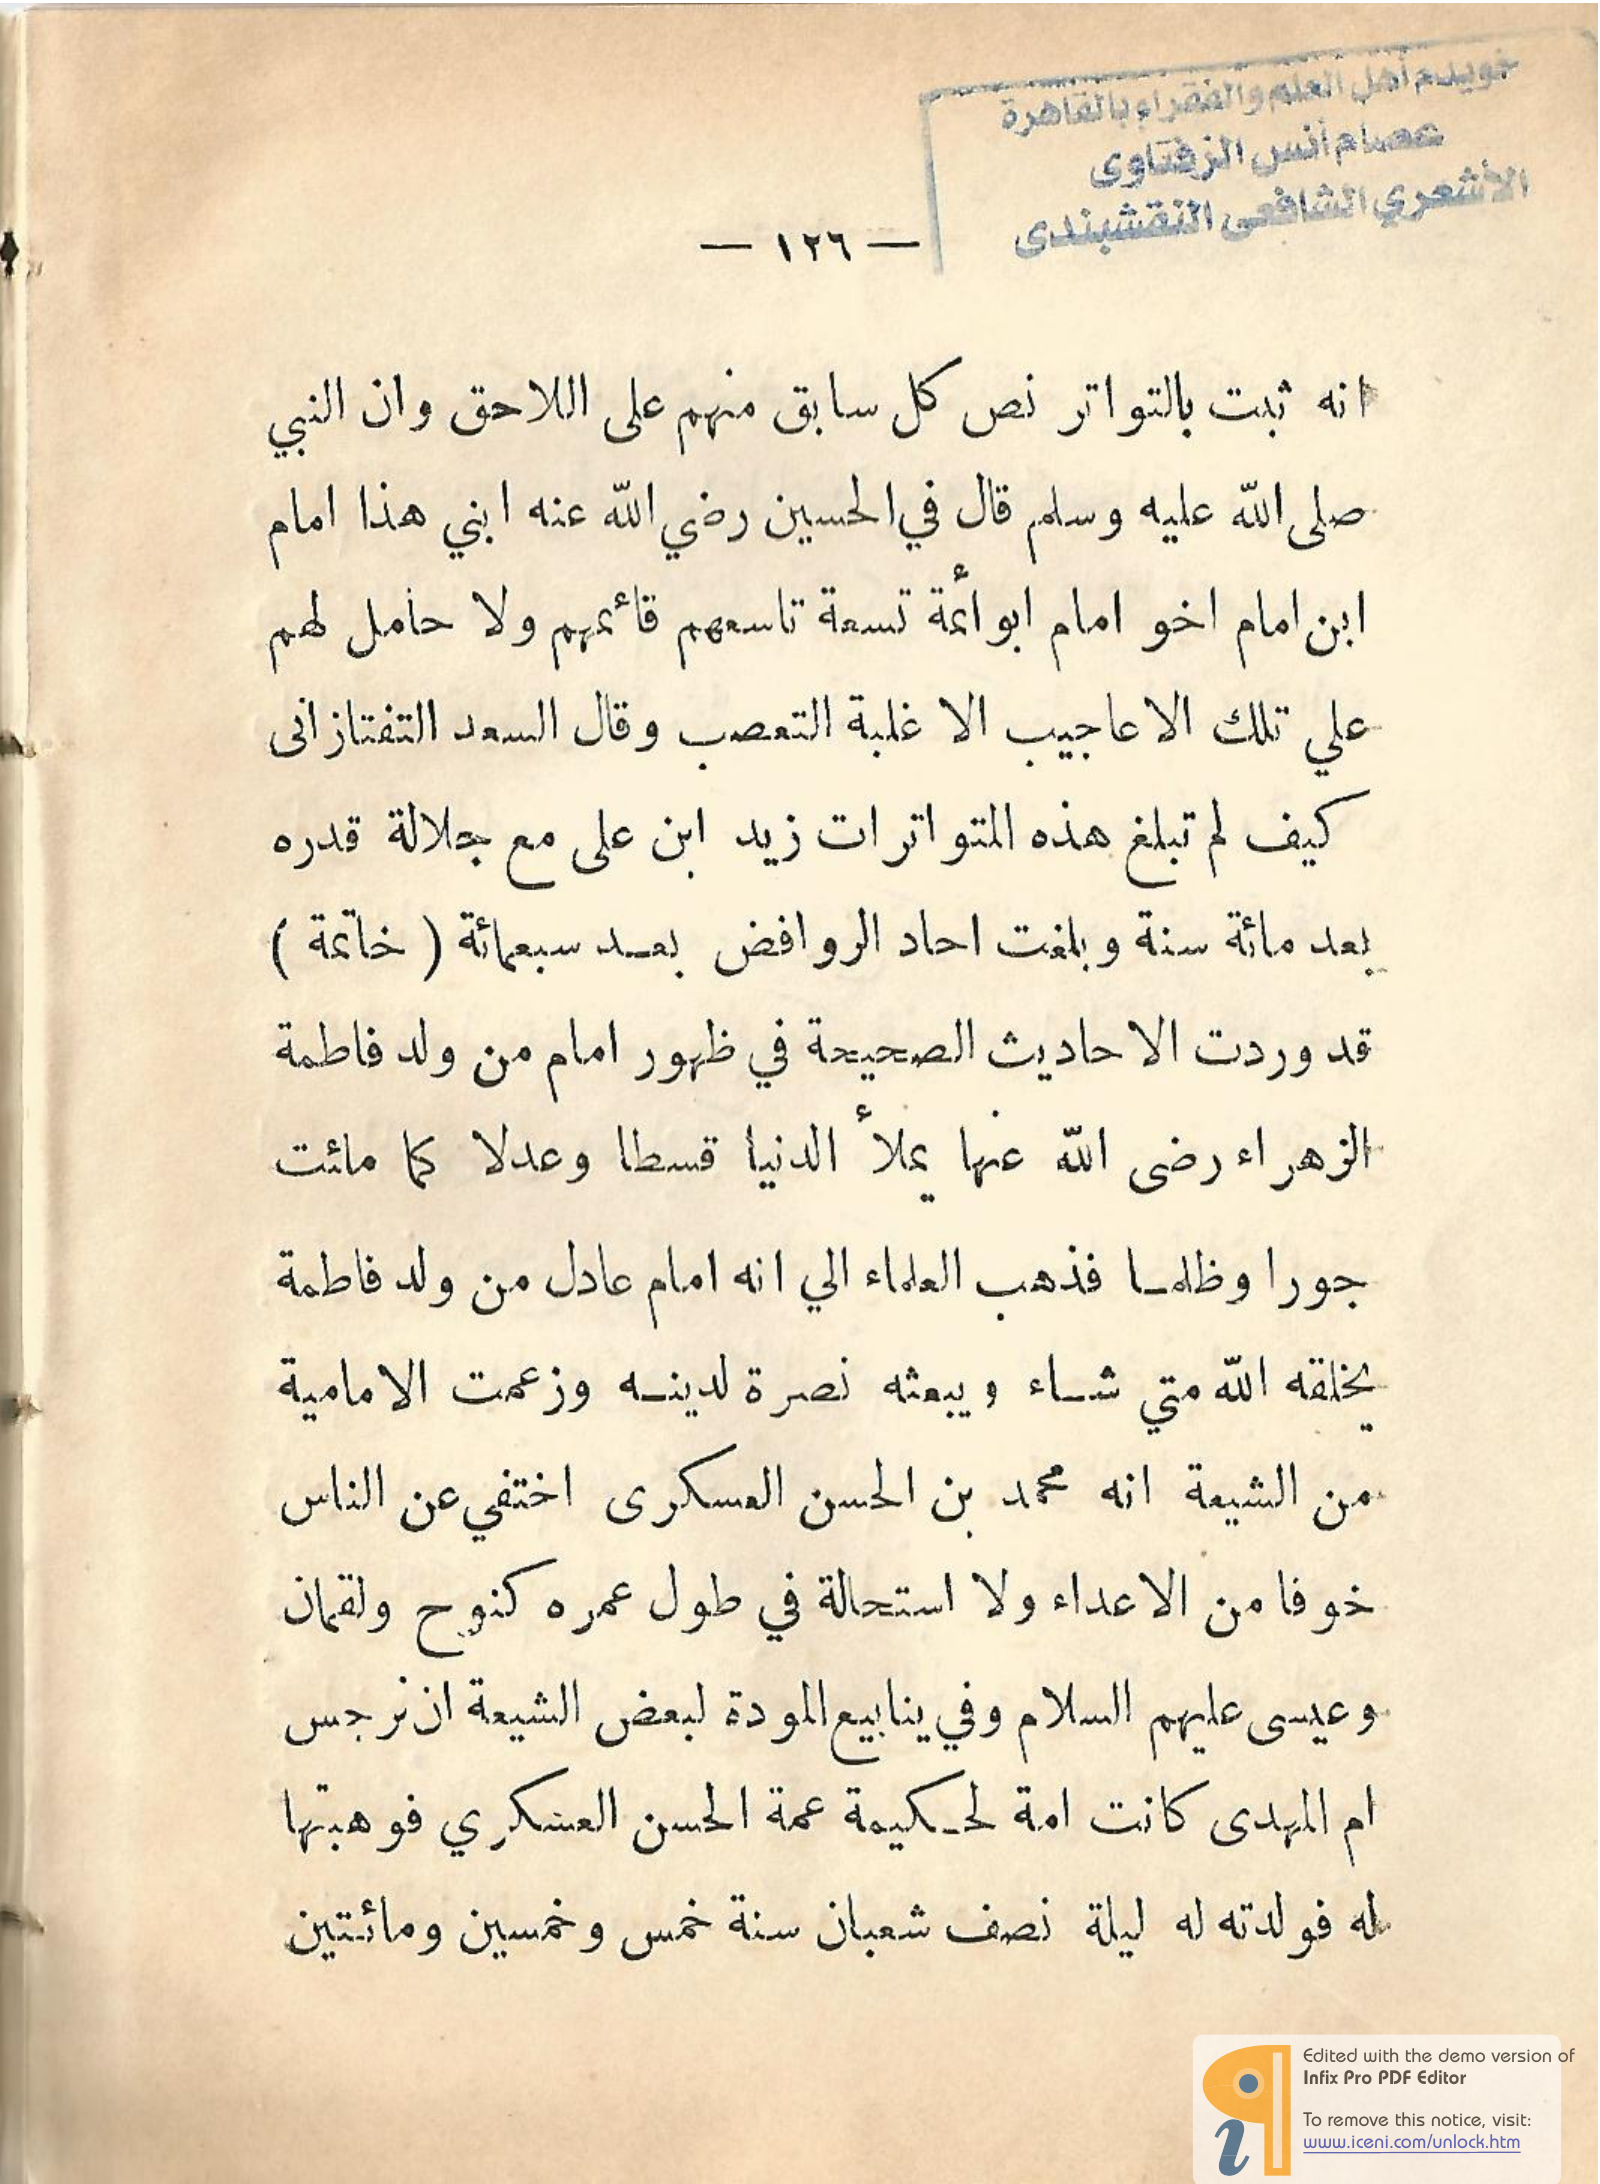 خويدم أهل العلم والفقراء بالقاهرة
عصام أنس الزفتاوى
الأشعري الشافعى النقشبندى
— ١٢٦ —
انه ثبت بالتواتر نص كل سابق منهم على اللاحق وان النبي
صلى الله عليه وسلم قال في الحسين رضي الله عنه ابني هذا امام
ابن امام اخو امام ابو أئمة تسعة تاسعهم قائمهم ولا حامل لهم
علي تلك الاعاجيب الا غلبة التعصب وقال السعد التفتازانى
كيف لم تبلغ هذه المتواترات زيد ابن على مع جلالة قدره
بعد مائة سنة وبلغت احاد الروافض بعد سبعمائة ( خاتمة )
قد وردت الاحاديث الصحيحة في ظهور امام من ولد فاطمة
الزهراء رضى الله عنها يملأ الدنيا قسطا وعدلا كما مائت
جورا وظلما فذهب العلماء الي انه امام عادل من ولد فاطمة
يخلقه الله متي شاء ويبعثه نصرة لدينه وزعمت الامامية
من الشيعة انه محمد بن الحسن العسكرى اختفي عن الناس
خوفا من الاعداء ولا استحالة في طول عمره كنوح ولقمان
وعيسى عليهم السلام وفي ينابيع المودة لبعض الشيعة ان نرجس
ام المهدى كانت امة لحكيمة عمة الحسن العسكري فوهبتها
له فولدته له ليلة نصف شعبان سنة خمس وخمسين ومائتين
Edited with the demo version of
Infix Pro PDF Editor
To remove this notice, visit:
www.iceni.com/unlock.htm